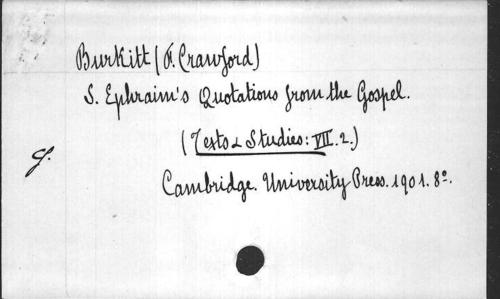 Burkitt (F. Crawford)
S. Ephraim's Quotations from the Gospel.
(Texts & Studies: VII. 2.)
Cambridge. University Press. 1901. 8º.